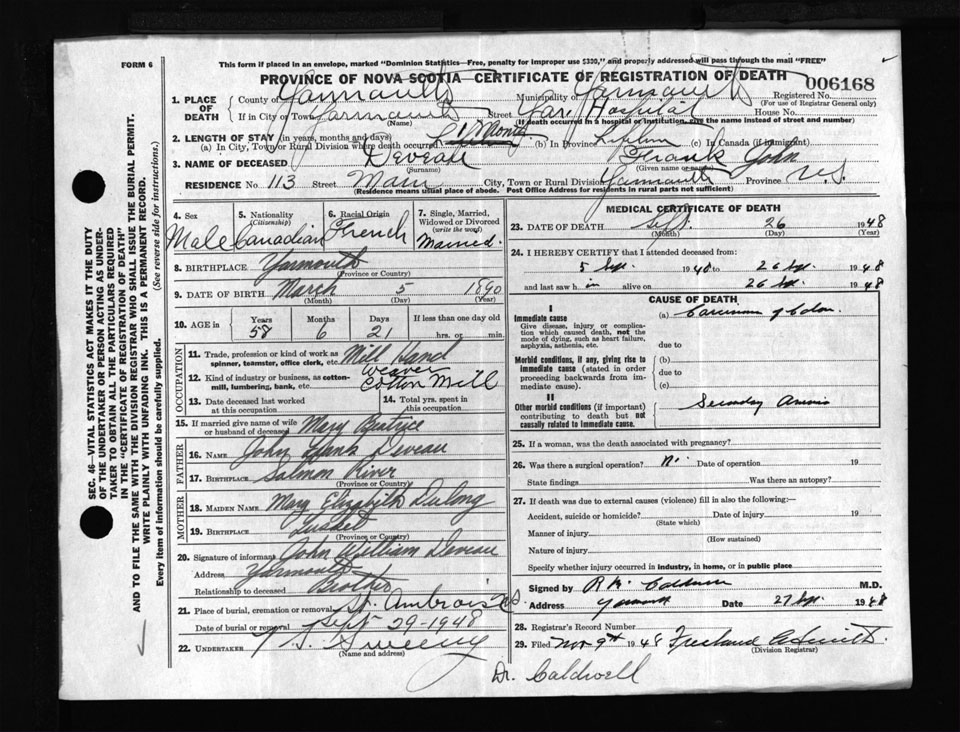 FORM 6
This form if placed in an envelope, marked "Dominion Statistics—Free, penalty for improper use $300," and properly addressed will pass through the mail "FREE"
PROVINCE OF NOVA SCOTIA—CERTIFICATE OF REGISTRATION OF DEATH
006168
Registered No.
(For use of Registrar General only)
1. PLACE OF DEATH
County of Yarmouth Municipality of Yarmouth
If in City or Town Yarmouth Street Yar. Hospital House No.
(Name) (If death occurred in a hospital or institution, give the name instead of street and number)
2. LENGTH OF STAY (in years, months and days)
(a) In City, Town or Rural Division where death occurred (b) In Province Lifetime (c) In Canada (if immigrant)
3. NAME OF DECEASED Deveau Frank John
(Surname) (Given name or names)
RESIDENCE No. 113 Street Main City, Town or Rural Division Yarmouth Province N.S.
(Residence means usual place of abode. Post Office Address for residents in rural parts not sufficient)
4. Sex Male
5. Nationality (Citizenship) Canadian
6. Racial Origin French
7. Single, Married, Widowed or Divorced (write the word) Married.
8. BIRTHPLACE Yarmouth
(Province or Country)
9. DATE OF BIRTH March 5 1890
(Month) (Day) (Year)
10. AGE in Years 58 Months 6 Days 21 If less than one day old hrs. or min.
OCCUPATION
11. Trade, profession or kind of work as spinner, teamster, office clerk, etc. Mill Hand
Weaver
12. Kind of industry or business, as cotton-mill, lumbering, bank, etc. Cotton Mill
13. Date deceased last worked at this occupation
14. Total yrs. spent in this occupation
15. If married give name of wife or husband of deceased Mary Beatrice
FATHER
16. Name John Frank Deveau
17. Birthplace Salmon River
(Province or Country)
MOTHER
18. Maiden Name Mary Elizabeth Dulong
19. Birthplace
(Province or Country)
20. Signature of informant John William Deveau
Address Yarmouth
Relationship to deceased Brother
21. Place of burial, cremation or removal St. Ambrose
Date of burial or removal Sept 29-1948
22. UNDERTAKER Sweeny
(Name and address)
MEDICAL CERTIFICATE OF DEATH
23. DATE OF DEATH Sept. 26 1948
(Month) (Day) (Year)
24. I HEREBY CERTIFY that I attended deceased from:
5 Sept. 1948 to 26 Sept. 1948
and last saw h im alive on 26 Sept. 1948
CAUSE OF DEATH
I
Immediate cause
Give disease, injury or complication which caused death, not the mode of dying, such as heart failure, asphyxia, asthenia, etc.
(a) Carcinoma of Colon.
due to
Morbid conditions, if any, giving rise to immediate cause (stated in order proceeding backwards from immediate cause).
(b)
due to
(c)
II
Other morbid conditions (if important) contributing to death but not causally related to immediate cause.
Secondary Anemia
25. If a woman, was the death associated with pregnancy?
26. Was there a surgical operation? No. Date of operation 19
State findings Was there an autopsy?
27. If death was due to external causes (violence) fill in also the following:—
Accident, suicide or homicide? Date of injury 19
(State which)
Manner of injury
(How sustained)
Nature of injury
Specify whether injury occurred in industry, in home, or in public place
Signed by Caldwell M.D.
Address Yarmouth Date 27 Sept. 1948
28. Registrar's Record Number
29. Filed Nov 9th 1948
(Division Registrar)
Dr. Caldwell
SEC. 46—VITAL STATISTICS ACT MAKES IT THE DUTY
OF THE UNDERTAKER OR PERSON ACTING AS UNDER-
TAKER TO OBTAIN ALL THE PARTICULARS REQUIRED
IN THE "CERTIFICATE OF REGISTRATION OF DEATH"
AND TO FILE THE SAME WITH THE DIVISION REGISTRAR WHO SHALL ISSUE THE BURIAL PERMIT.
WRITE PLAINLY WITH UNFADING INK. THIS IS A PERMANENT RECORD.
Every item of information should be carefully supplied. (See reverse side for instructions.)